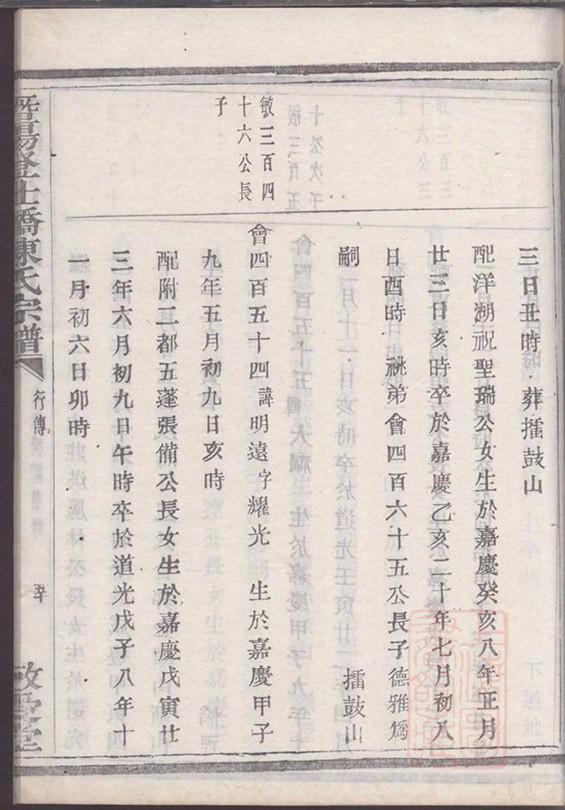 三日丑時 葬擂鼓山
配洋湖祝聖瑞公女生於嘉慶癸亥八年正月
廿三日亥時卒於嘉慶乙亥二十年七月初八
日酉時 祧弟會四百六十五公長子德雅爲
嗣 擂鼓山
敏三百四
十六公長
子
會四百五十四 諱明遠字耀光 生於嘉慶甲子
九年五月初九日亥時
配附二都五蓬張備公長女生於嘉慶戊寅廿
三年六月初九日午時卒於道光戊子八年十
一月初六日卯時
暨陽登仕橋陳氏宗譜
行傳